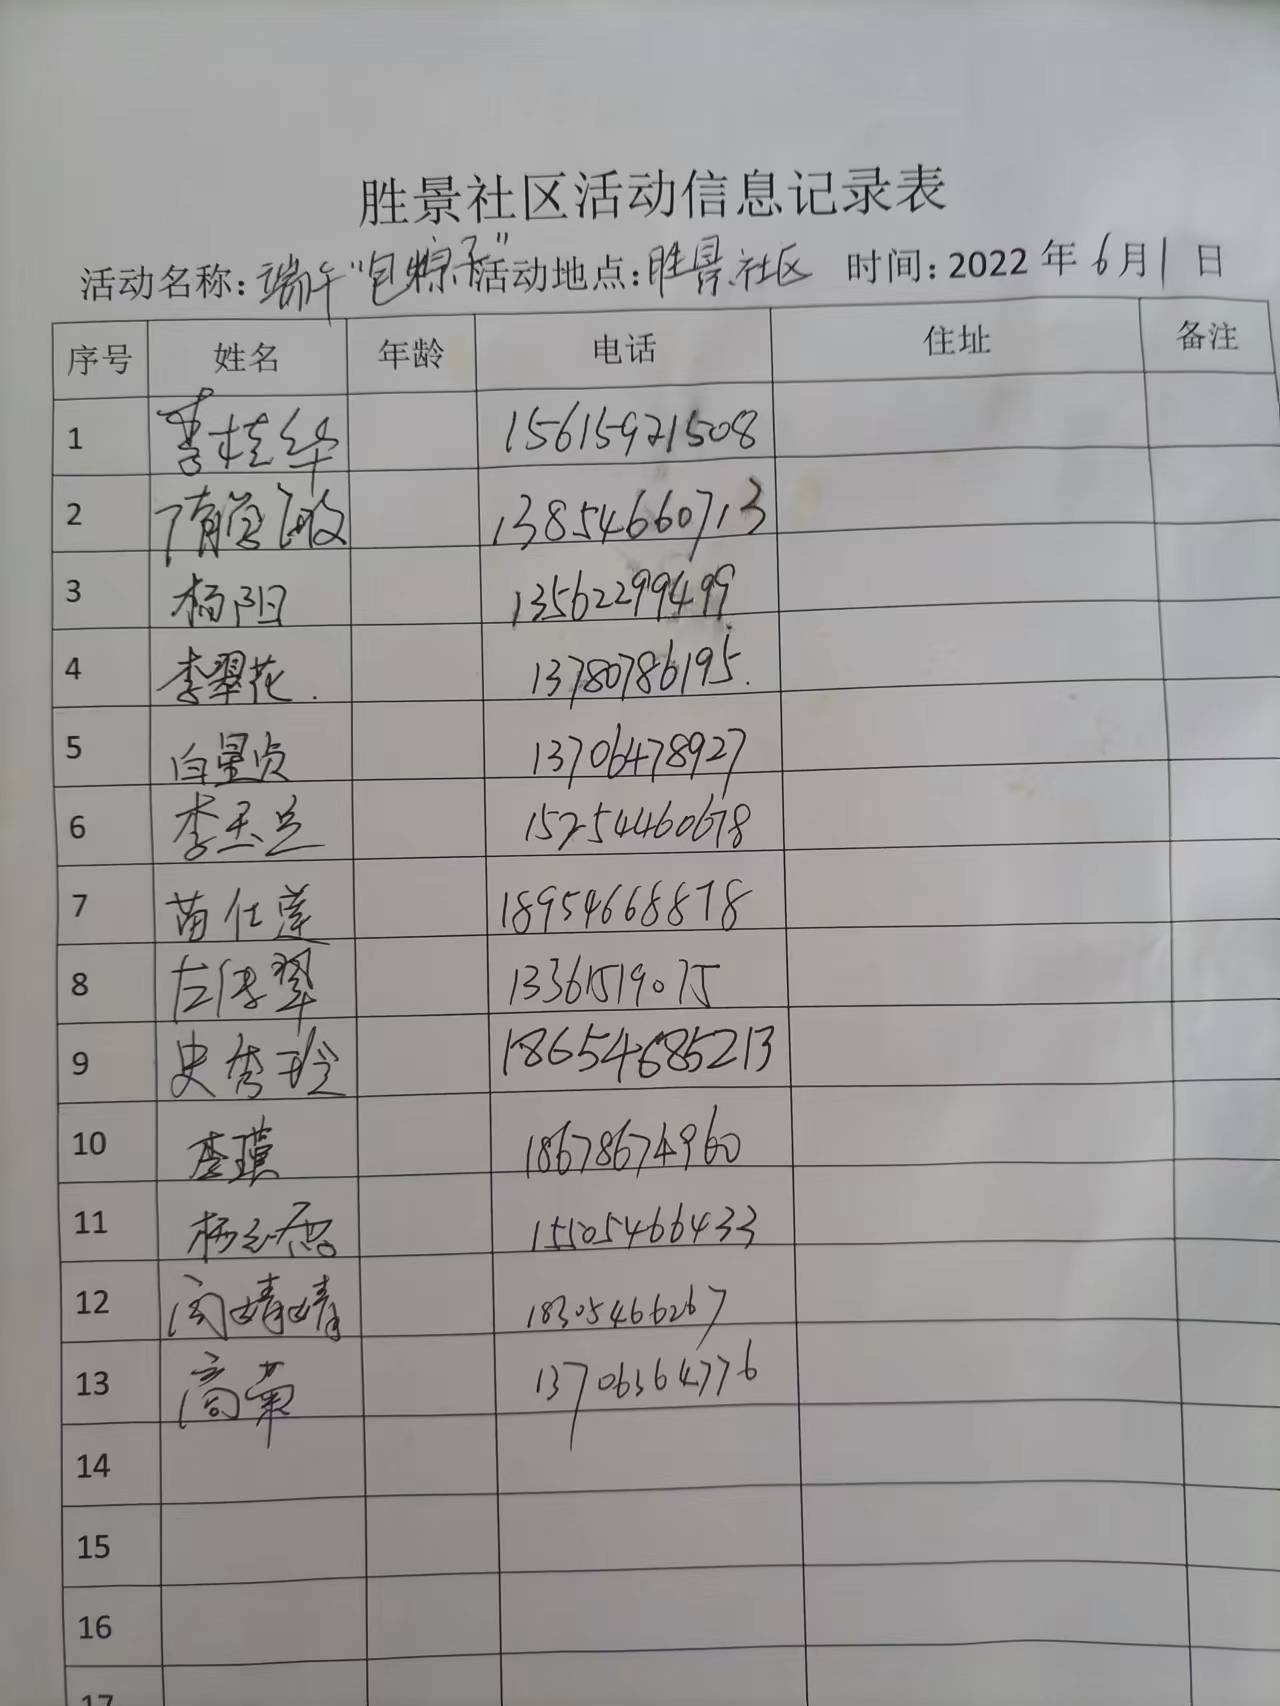 胜景社区活动信息记录表
活动名称:端午"包粽子"活动地点:胜景社区 时间:2022年6月1日
序号 姓名 年龄 电话 住址 备注
1 李桂华 15615921508
2 隋 敏 13854660713
3 杨阳 13562299499
4 李翠花. 13780786195.
5 白星贞 13706478927
6 李玉兰 15254460678
7 苗仕莲 18954668878
8 左传翠 13361519075
9 史秀玲 18654685213
10 李瑾 18678674960
11 杨 15505466433
12 闫婧婧 18305466267
13 高菊 13706364776
14
15
16
17